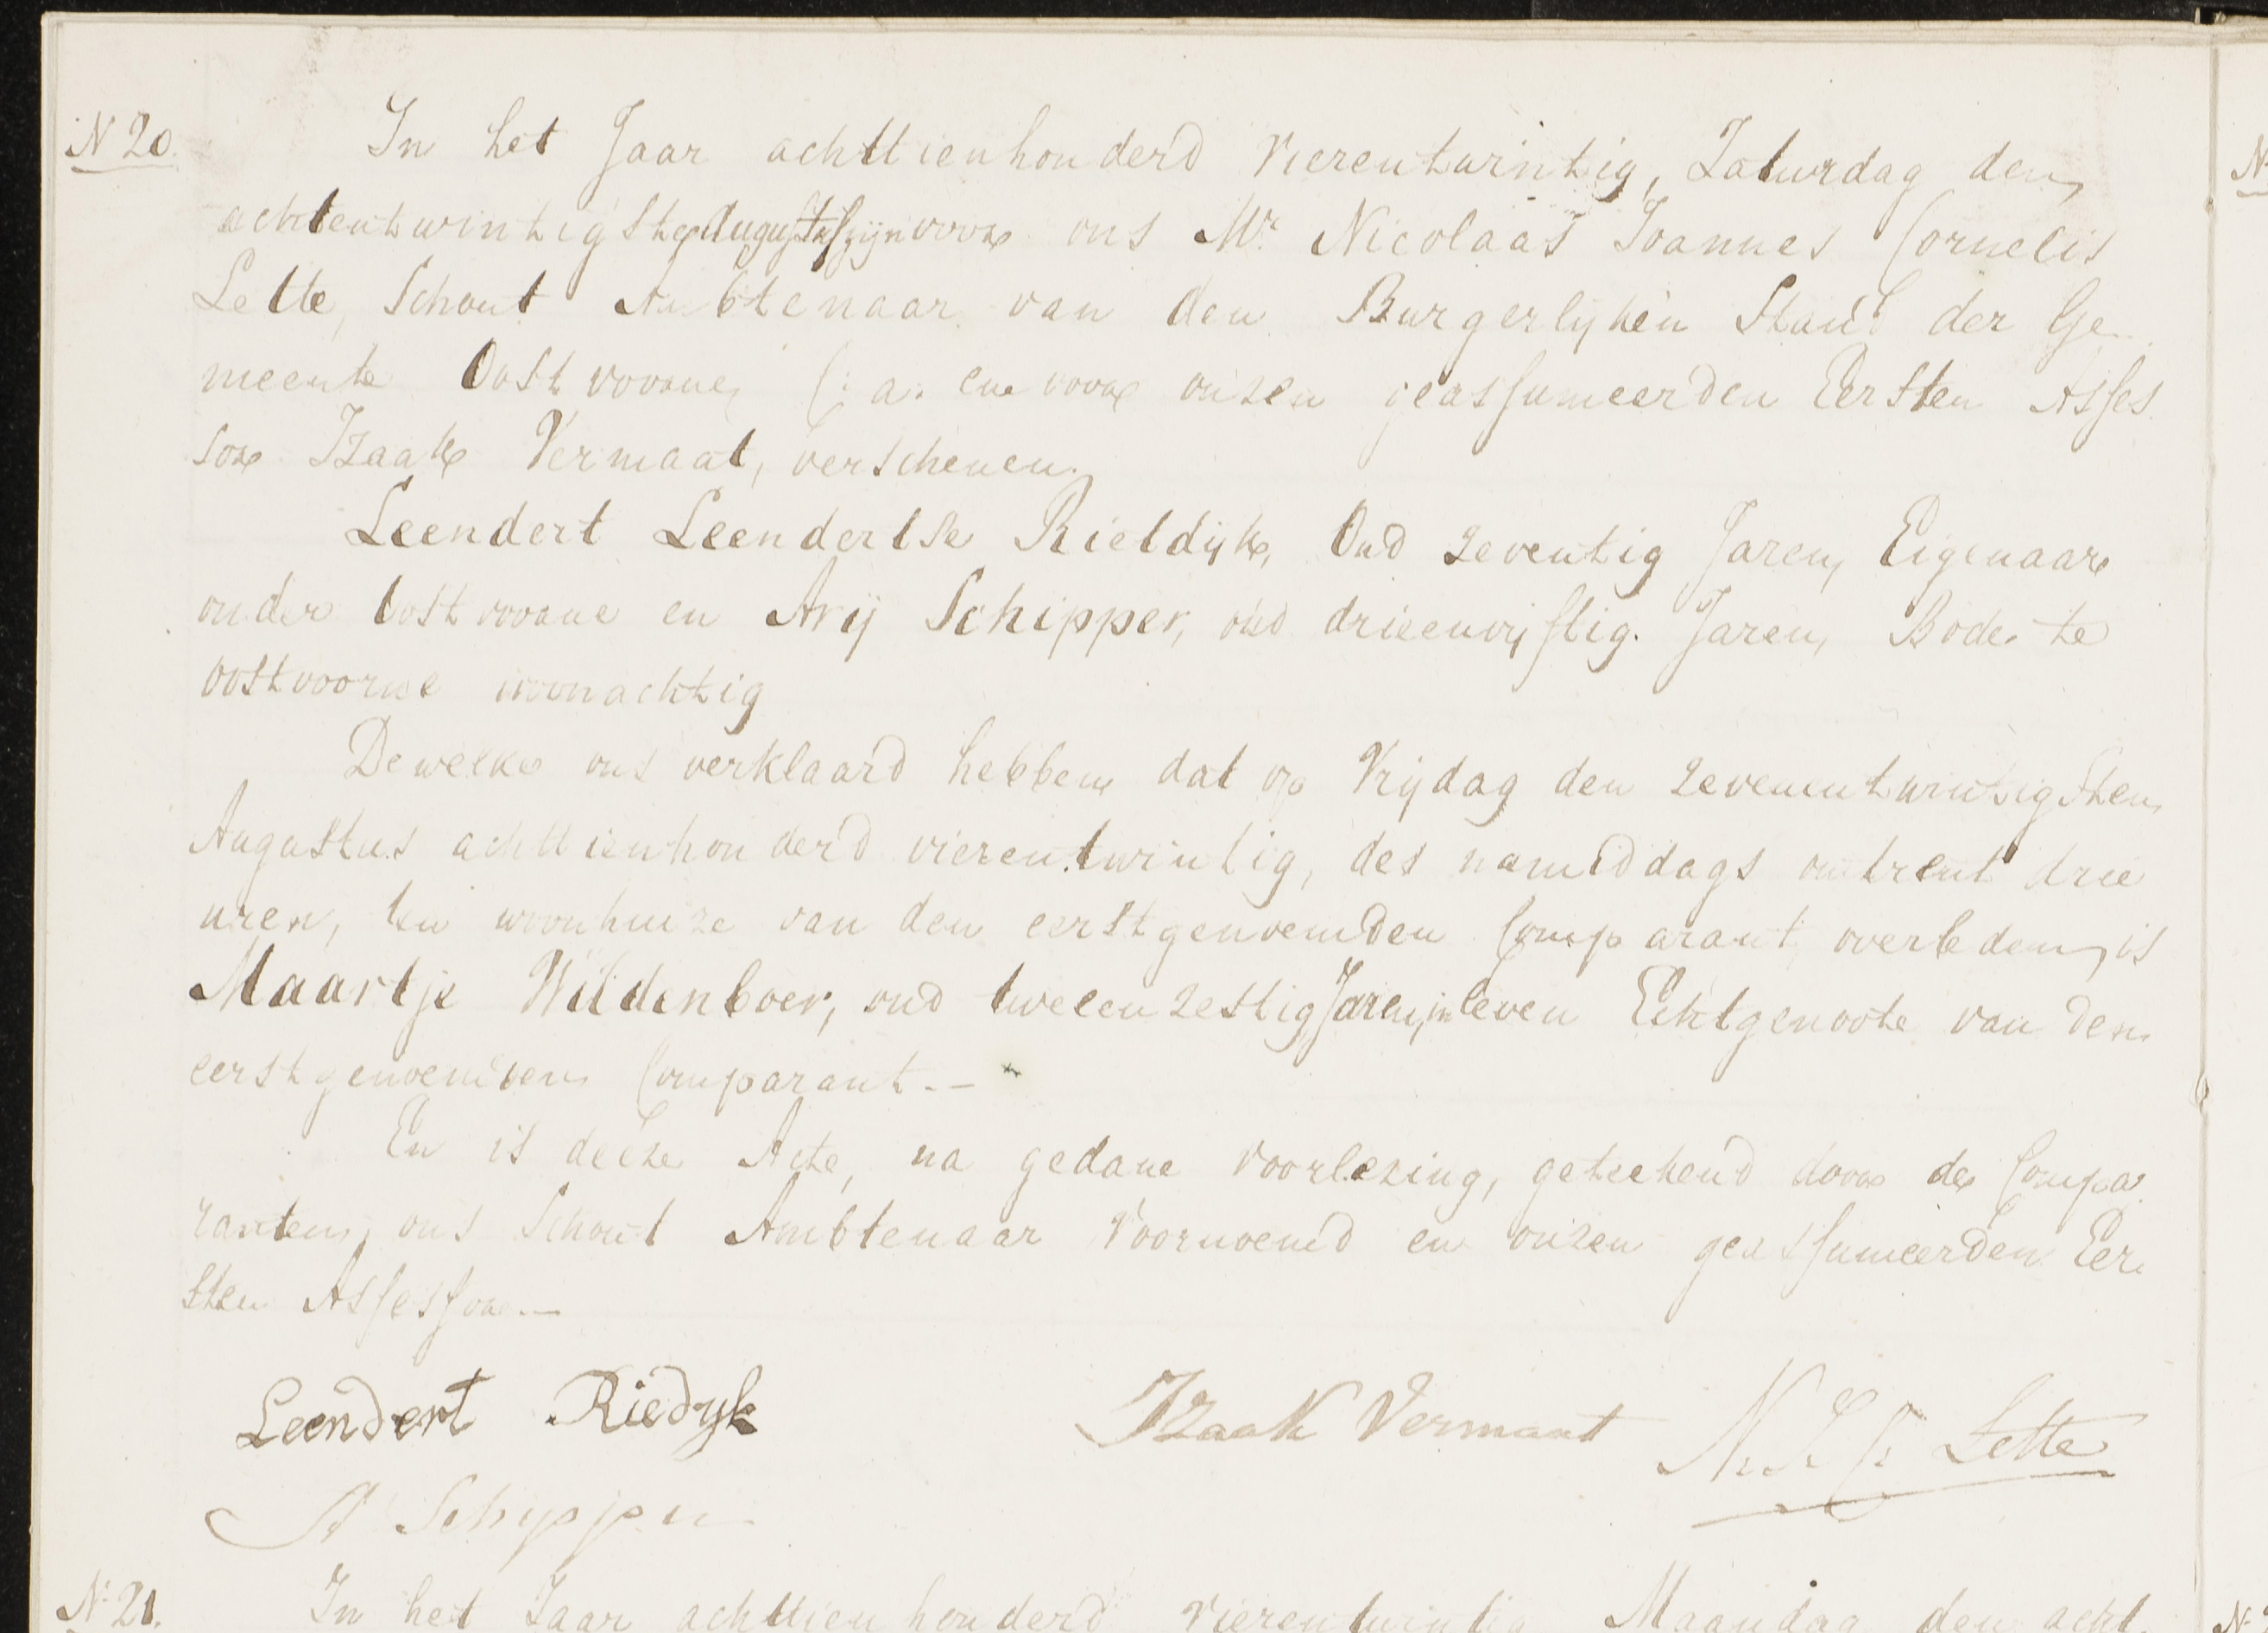 N 20.
In het Jaar achttienhonderd vierentwintig, Zaturdag den
achtentwintigste Augustus zijn voor ons Mr. Nicolaas Joannes Cornelis
Lette, Schout Ambtenaar van den Burgerlijken Stand der Ge
meente Oostvoorne (: a: en voor onzen geassumeerden Eersten Asses
sor Izaak Vermaat, verschenen.
Leendert Leendertse Rietdijk, Oud zeventig Jaren, Eigenaar
onder Oostvoorne en Arij Schipper, oud drieenvijftig. Jaren, Bode te
oostvoorne woonachtig
Dewelke ons verklaard hebben dat op Vrijdag den zevenentwintigsten
Augustus achttienhonderd vierentwintig, des namiddags omtrent drie
uren, ten woonhuize van den eerstgenoemden Comparant, overleden, is
Maartje Wildenboer, oud tweeenzestig Jaren, in leven Echtgenoote van den
eerstgenoemden Comparant.—
En is deeze Acte, na gedane voorlezing, geteekend door de Compa
ranten, ons Schout Ambtenaar voornoemd en onzen geassumeerden Eer
sten Assessor.—
Leendert Riedyk
Izaak Vermaat
Lette
A Schypper
N. 21.
In het Jaar achttienhonderd vierentwintig Maandag den acht